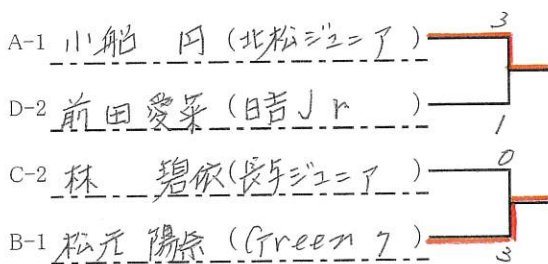 A-1 小船 円 (北松ジュニア)
3
D-2 前田愛采 (日吉Jr)
1
C-2 林 碧依 (長与ジュニア)
0
B-1 松元 陽奈 (Green 7)
3